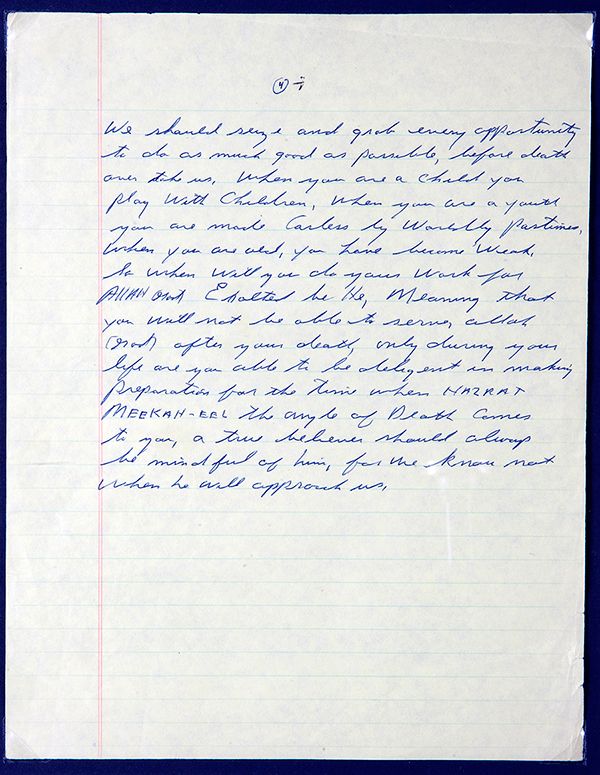 4
We should seize and grab every opportunity
to do as much good as possible, before death
over take us. When you are a child you
play With Children, When you are a youth
you are made Carless by Worldly Pastimes,
When you are old, you have become Weak,
So when Will you do your Work for
AllAH (God) Exalted be He, Meaning that
you will not be able to serve, allah
(God) after your death, only during your
life are you able to be deligent in making
Preparation for the time when HAZRAT
MEEKAH-EEL the angle of Death Comes
to you, a true believer should always
be mindful of him, for we know not
When he will approach us.